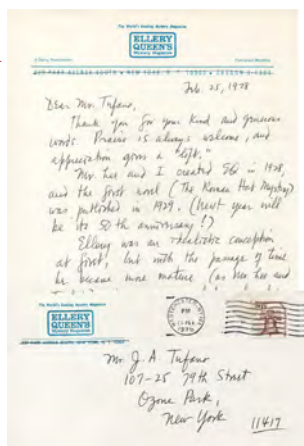 The World's Leading Mystery Magazine
ELLERY
QUEEN'S
Mystery Magazine
Feb 25, 1978
Dear Mr. Tufano,
Thank you for your kind and generous
words. Praise is always welcome, and
appreciation gives a "lift."
Mr. Lee and I created EQ in 1928,
and the first novel (The Roman Hat Mystery)
was published in 1929. (Next year will
be its 50th anniversary!)
Ellery was an idealistic conception
at first, but with the passage of time
he became more mature (as Mr. Lee and
The World's Leading Mystery Magazine
ELLERY
QUEEN'S
Mystery Magazine
PM
Mr. J. A. Tufano
107-25 79th Street
Ozone Park,
New York
11417